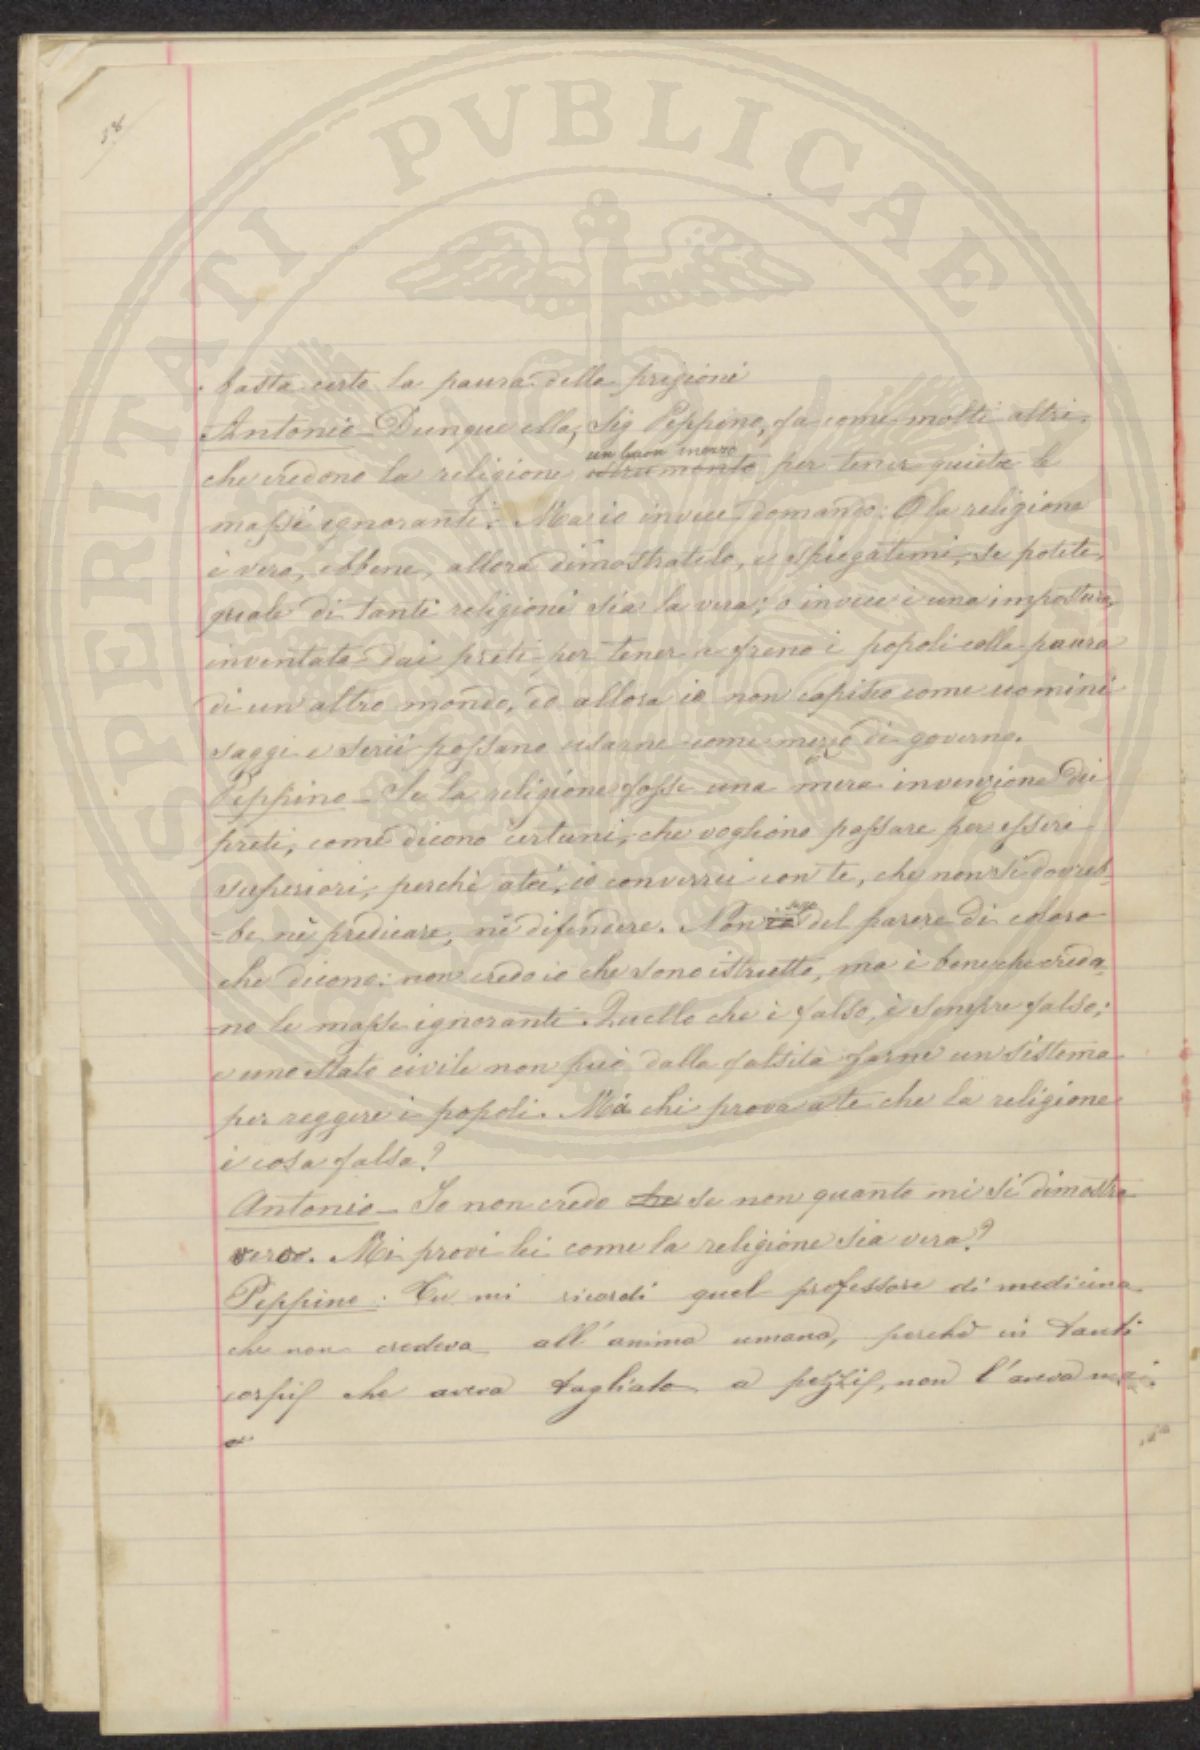 58
SPERITATI PVBLICAE
basta certo la paura delle prigioni
Antonio – Dunque ella, Sig Peppino, fa come molti altri,
un buon mezzo
che credono la religione strumento per tener quiete le
masse ignoranti. Ma io invece domando: O la religione
è vera, ebbene, allora dimostratelo, e spiegatemi, se potete,
quale di tante religioni sia la vera; o invece è una impostura,
inventata dai preti per tener a freno i popoli colla paura
di un altro mondo, ed allora io non capisco come uomini
saggi e serii possano usarne come mezzo di governo.
Peppino – Se la religione fosse una mera invenzione dei
preti, come dicono certuni, che vogliono passare per essere
superiori, perchè atei, io converrei con te, che non si dovreb-
-be nè predicare, nè difendere. Non del parere di coloro
che dicono: non credo io che sono istrutto, ma è bene che creda-
no le masse ignoranti. Quello che è falso, è sempre falso;
e uno Stato civile non può dalla falsità farne un sistema
per reggere i popoli. Ma chi prova a te che la religione
è cosa falsa?
Antonio – Io non credo che se non quanto mi si dimostra
vero. Mi provi lei come la religione sia vera?
Peppino: Tu mi ricordi quel professore di medicina
che non credeva all'anima umana, perchè in tanti
corpi che aveva tagliato a pezzi, non l'aveva mai